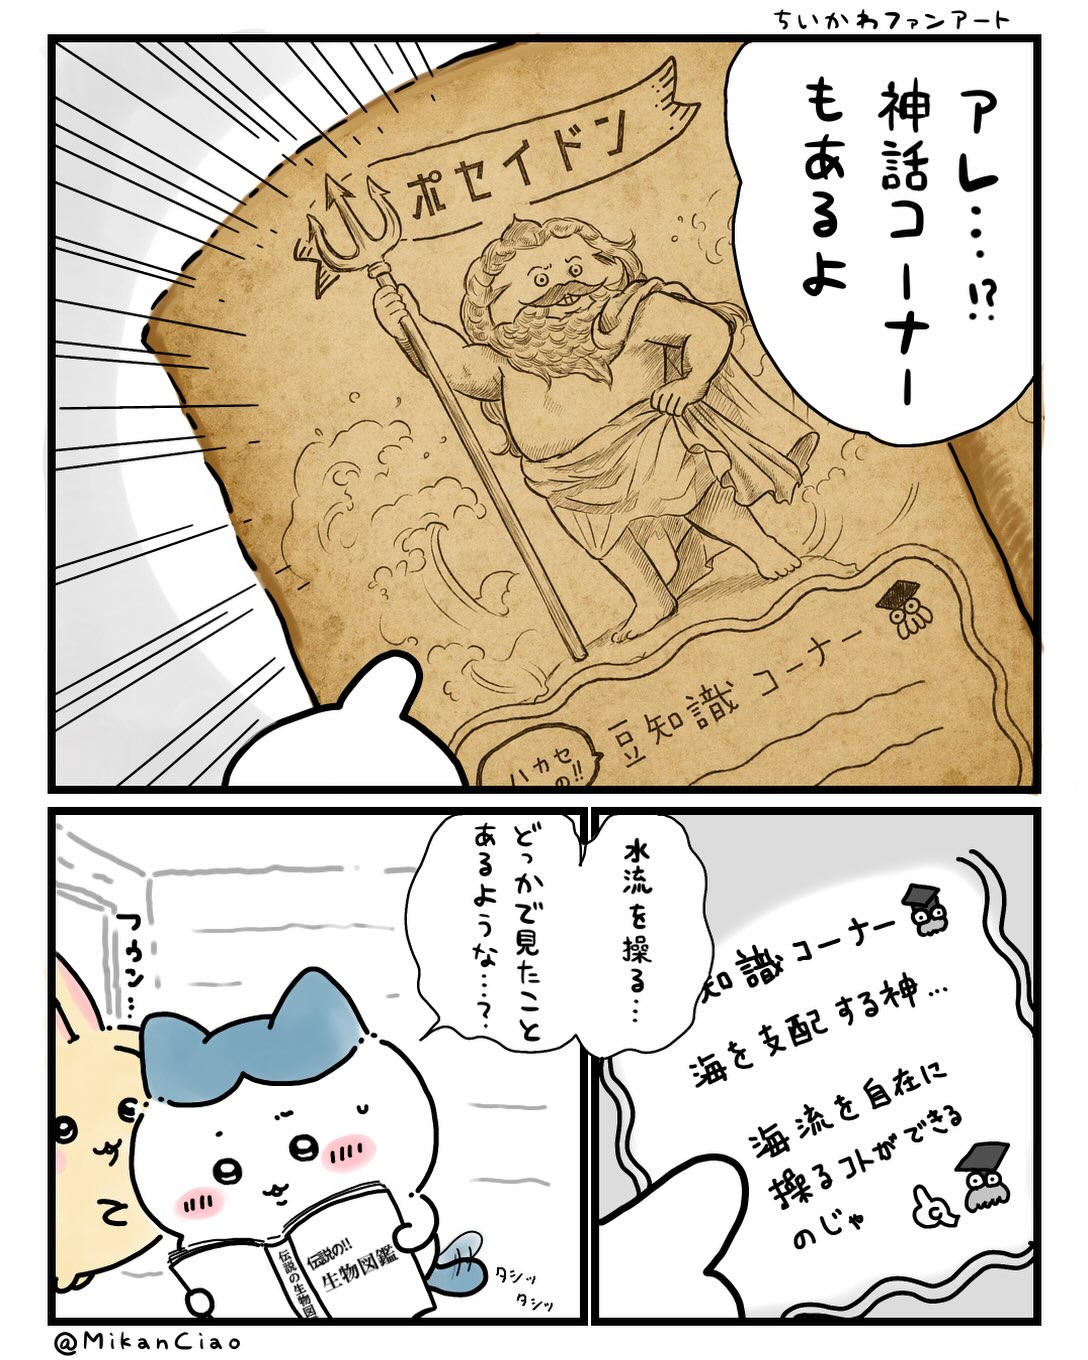 ちいかわファンアート
アレ…!?
神話コーナー
もあるよ
ポセイドン
豆知識コーナー
ハカセ
の!!
知識コーナー
海を支配する神…
海流を自在に
操るコトができる
のじゃ
水流を操る…
どっかで見たこと
あるような…?
フゥン…
伝説の!!
生物図鑑
伝説の生物図
タシッ
タシッ
@MikanCiao